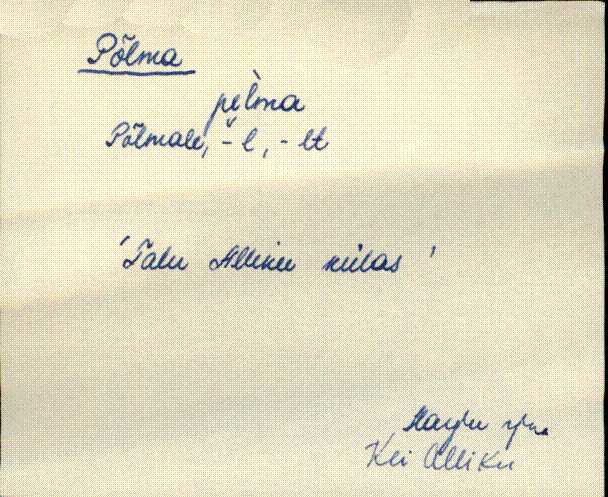 Põlma
pe̮lma
Põlmale, -l, -lt
'Talu Alliku külas'
Harju
Kei Alliku